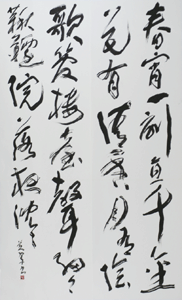 春宵一刻直千金
花有清香月有陰
歌管樓臺聲細々
鞦韆院落夜沈々